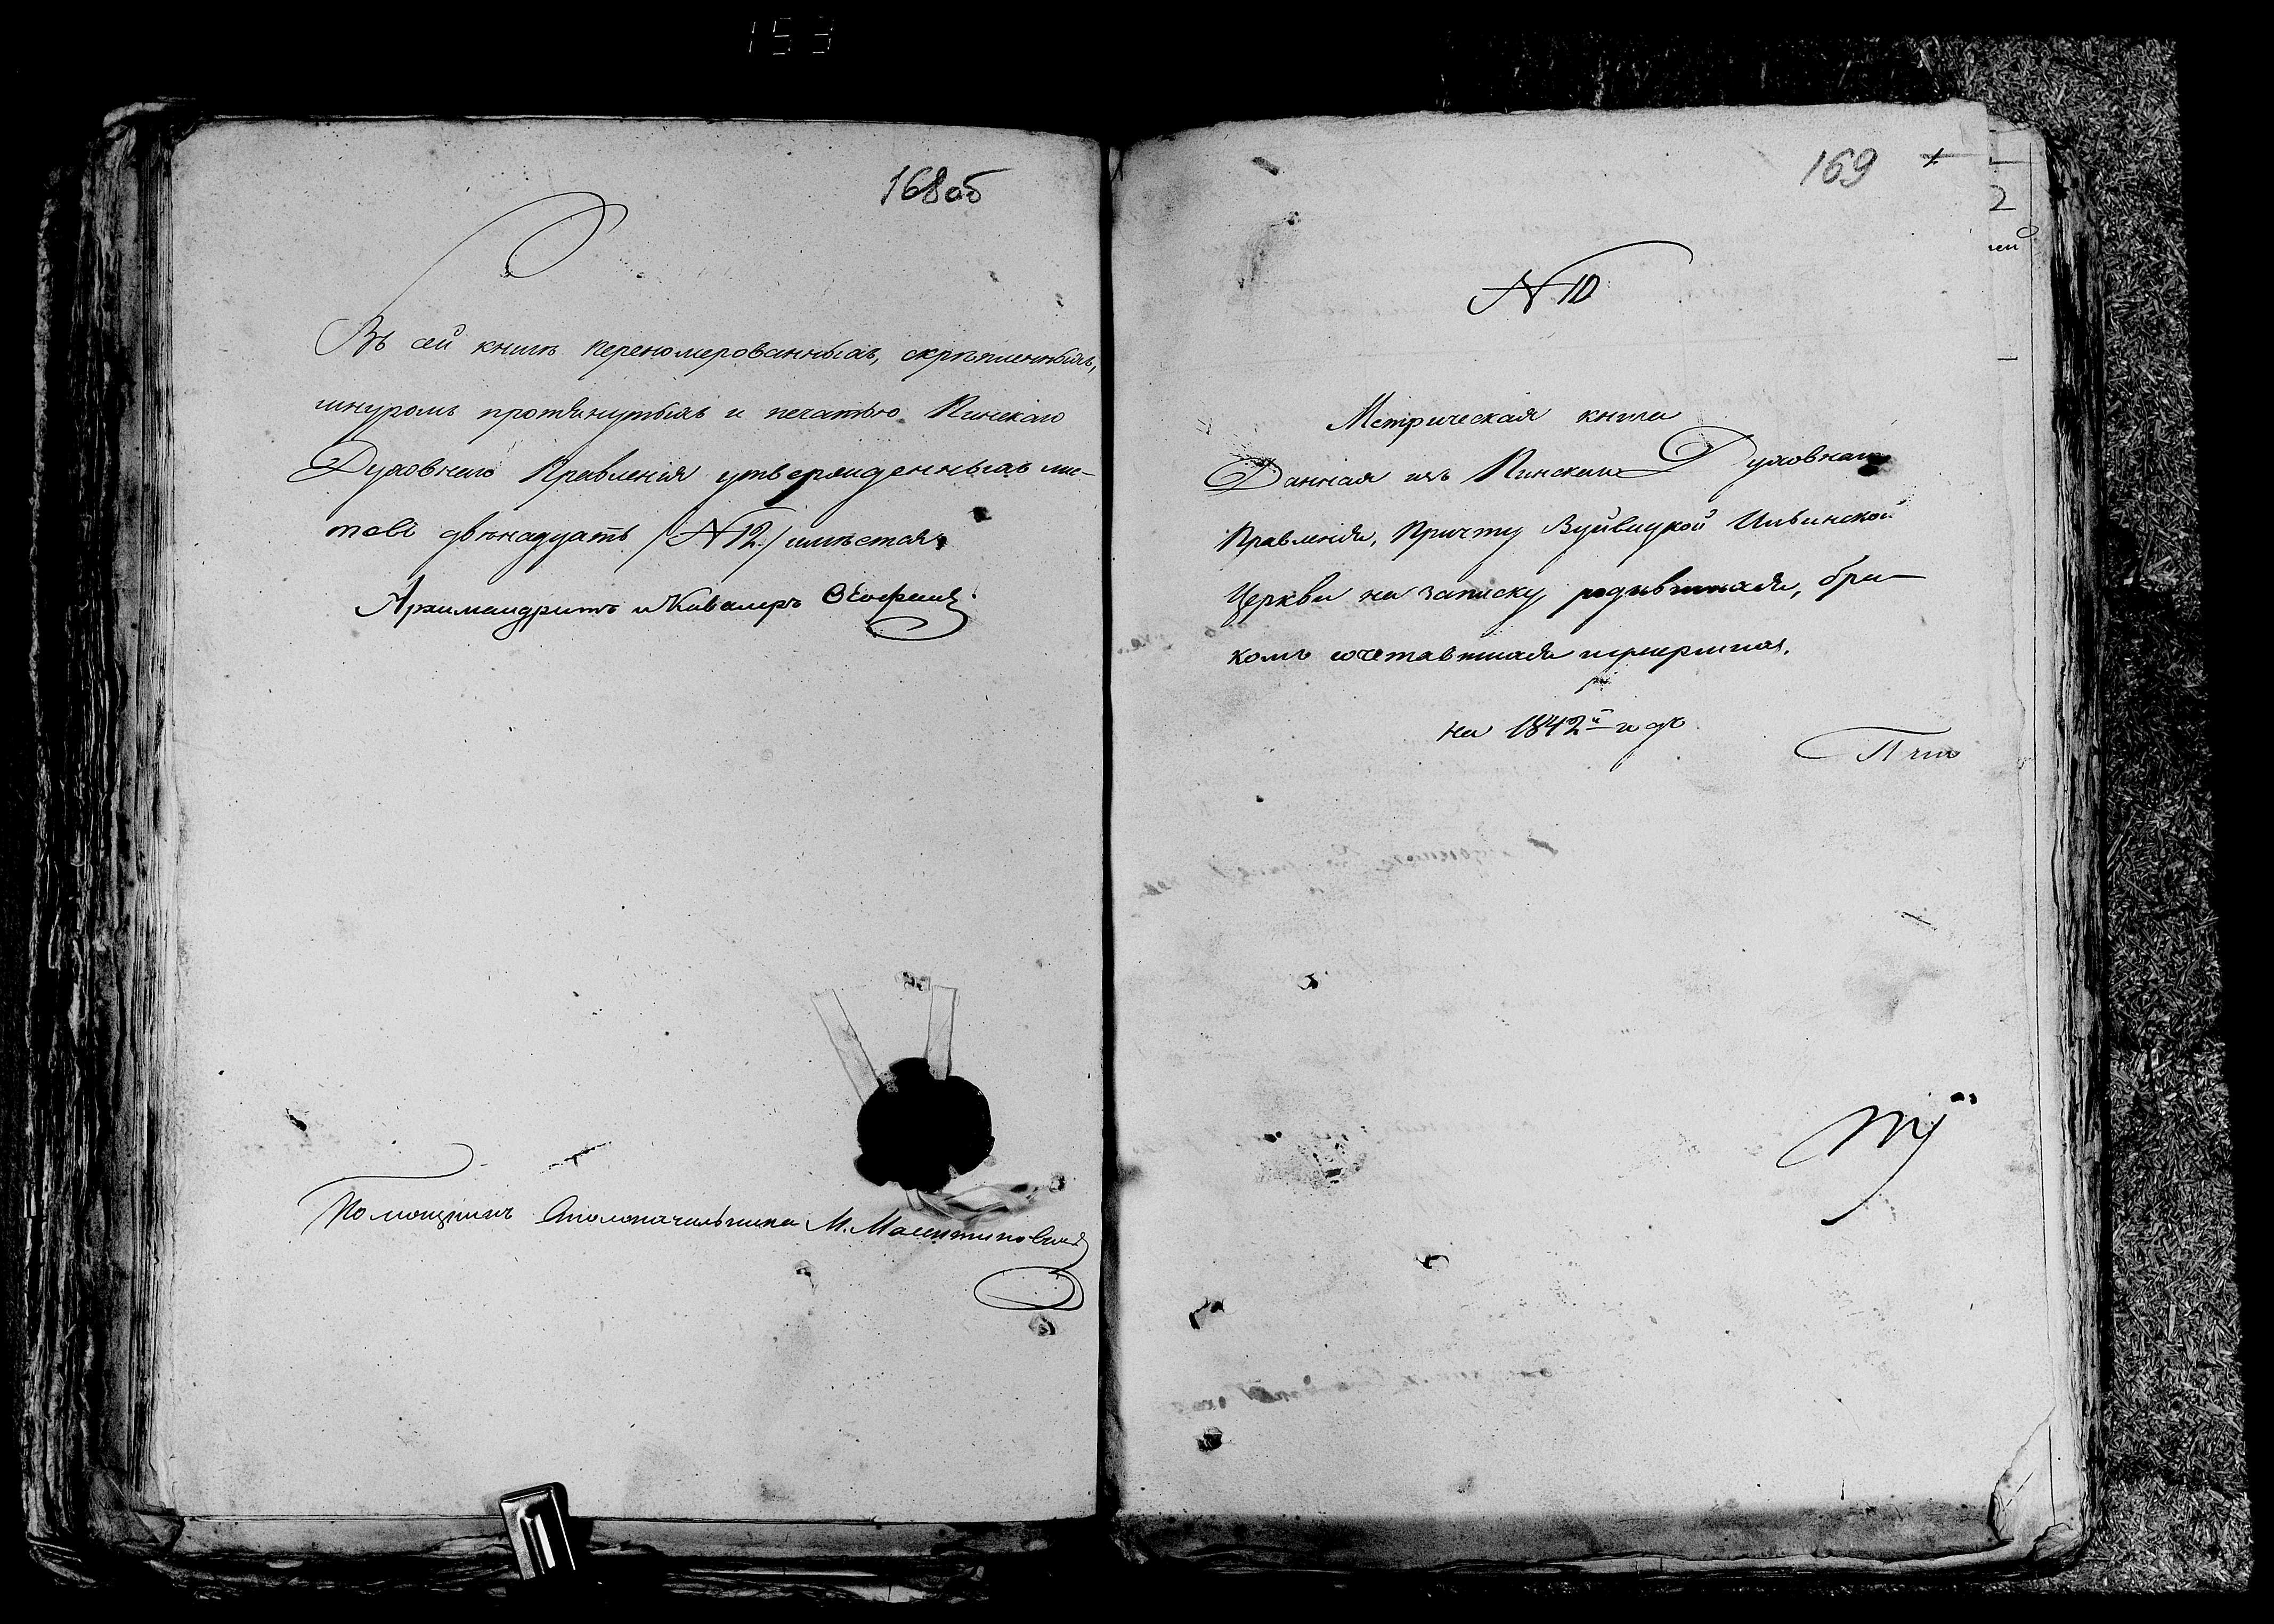 153
168 об
Въ сей книгѣ переномерованныхъ, скрѣпленныхъ,
шнуромъ протянутыхъ и печатью Пинскаго
Духовнаго Правленія утвержденныхъ лис-
товъ двѣнадцать /N 12./ имѣется.
Архимандритъ и Кавалеръ
Помощникъ Столоначальника М.
169
N 10
Метрическая книга
Данная изъ Пинскаго Духовнаго
Правленія, Причту Вуйвицкой Ильинской
Церкви на записку родившихся, бра-
комъ сочетавшихся и умершихъ.
на 1842й годъ